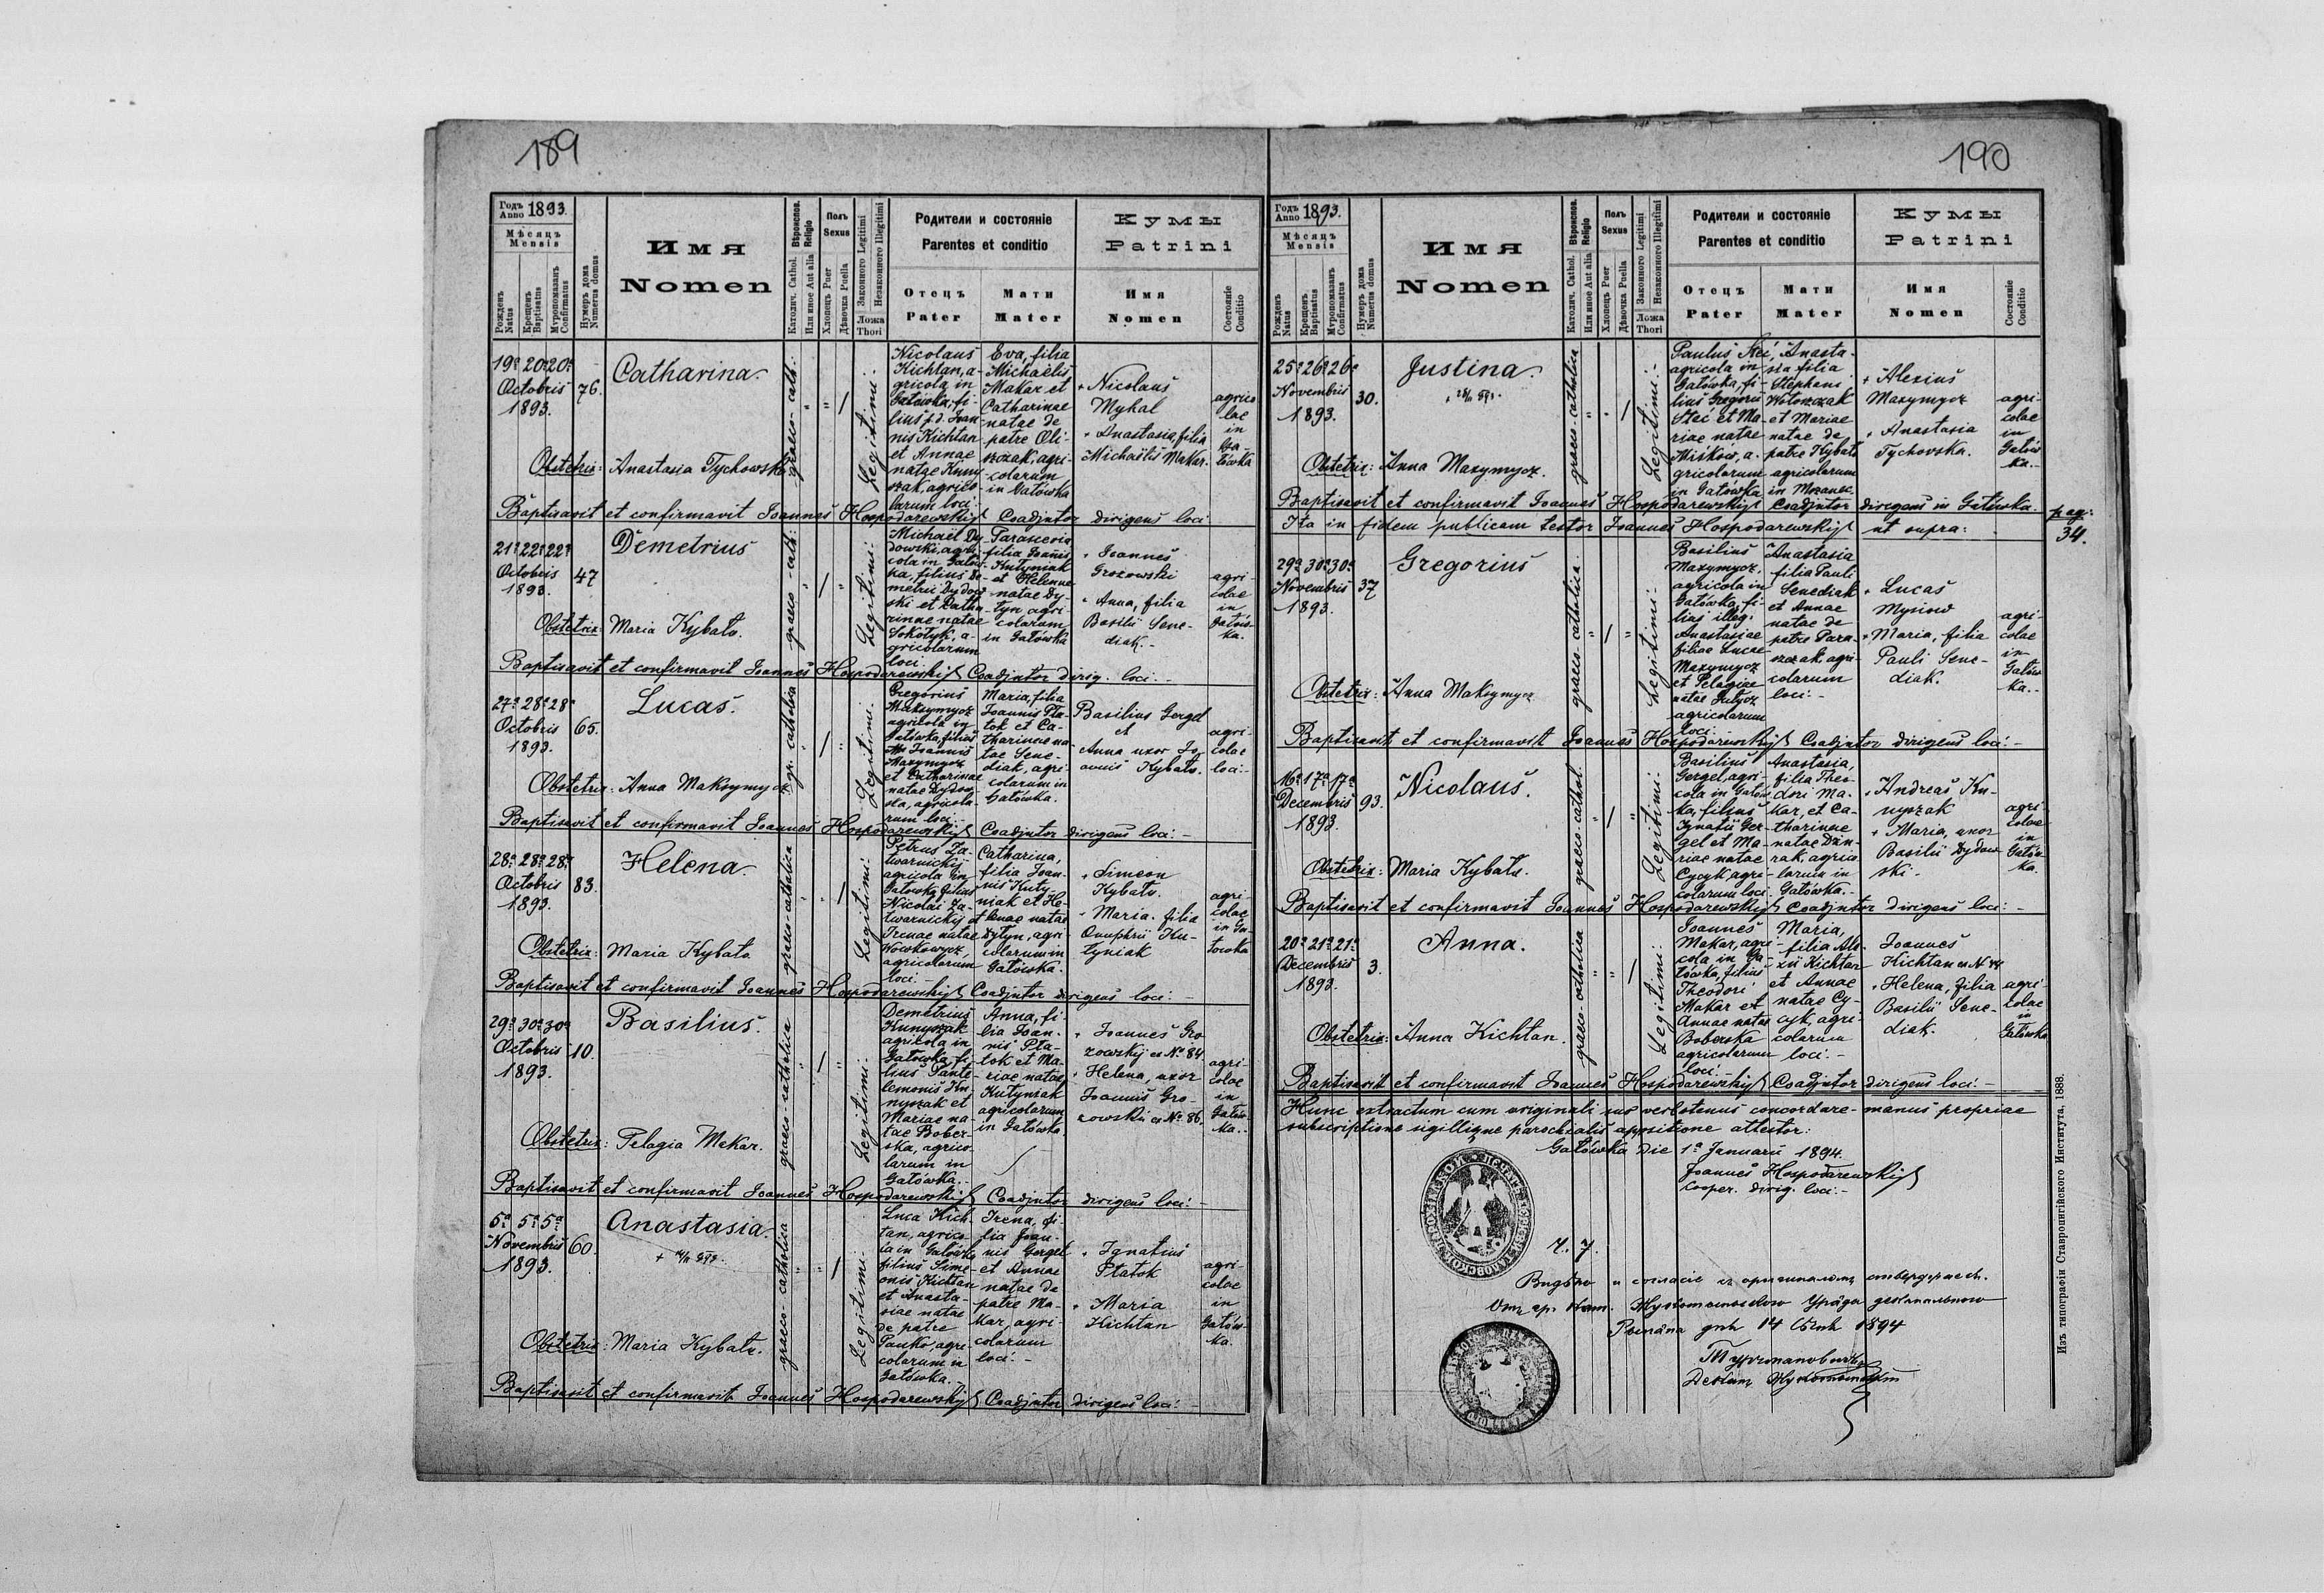 189
Годъ Anno 1893.
Мѣсяцъ Mensis
Рожденъ Natus
Крещенъ Baptisatus
Мѵропомазанъ Confirmatus
Нумеръ дома Numerus domus
Имя
Nomen
Вѣроиспов. Religio
Католич. Cathol.
Или иное Aut alia
Полъ Sexus
Хлопецъ Puer
Дѣвочка Puella
Законного Legitimi
Незаконного Illegitimi
Ложа Thori
Родители и состояніе
Parentes et conditio
Отецъ
Pater
Мати
Mater
Кумы
Patrini
Имя
Nomen
Состояніе Conditio
19a 20a 20a
Octobris
1893.
76.
Catharina.
graeco-cath:
Legitimi:
Nicolaus
Kichtan, a-
gricola in
Gatówka, fi-
lius p.d. Joan-
nis Kichtan
et Annae
natae Kuny-
szak, agrico-
larum loci.
Eva, filia
Michaelis
Makar et
Catharinae
natae de
patre Oli-
szczak, agri-
colarum
in Gatówka
Nicolaus
Mykal
Anastasia, filia
Michaëlis Makar.
agrico
lae
in
Ga-
tówka
Obstetrix: Anastasia Tychowska
Baptisavit et confirmavit Joannes Hospodarewskij Coadjutor dirigens loci
21a 22a 22a
Octobris
1893.
47
Demetrius
graeco-cath:
Legitimi:
Michael Dy-
dowski, agri-
cola in Gatów-
ka, filius De-
metrii Dydow-
ski et Catha-
rinae natae
Sokotyk, a-
gricolarum
loci.
Parascevia
filia Joannis
Kutyniak
et Helenae
natae Dy-
tyn agri-
colarum
in Gatówka
Joannes
Grozowski
Anna, filia
Basilii Sene-
diak.-
agri-
colae
in
Gatów-
ka.
Obstetrix: Maria Kybatv.
Baptisavit et confirmavit Joannes Hospodarewskij Coadjutor dirig. loci.-
27a 28a 28a
Octobris
1893.
65.
Lucas.
gr. catholica
Legitimi:
Gregorius
Maksymycz
agricola in
Gatówka, filius
Joannis
Maxymycz
et Catharinae
natae Dydow-
ska, agricola-
rum loci.-
Maria, filia
Joannis Pta-
tok et Ca-
tharinae na-
tae Sene-
diak, agri-
colarum in
Gatówka.
Basilius Gergel
et
Anna uxor Jo-
annis Kybatv.
agri-
colae
loci.-
Obstetrix: Anna Maksymycz
Baptisavit et confirmavit Joannes Hospodarewskij Coadjutor dirigens loci:-
28a 28a 28a
Octobris
1893.
83.
Helena.
graeco-catholica
Legitimi:
Petrus Za-
twarnickij
agricola in
Gatówka, filius
Nicolai Za-
twarnickij et
Irenae natae
Wowkowycz,
agricolarum
loci.-
Catharina,
filia Joan-
nis Kuty-
niak et He-
lenae natae
Dytyn, agri-
colarum in
Gatówka.
Simeon
Kybatv.
Maria. filia
Onuphrii Ku-
tyniak
agri-
colae
in Ga-
towka
Obstetrix: Maria Kybatv.
Baptisavit et confirmavit Joannes Hospodarewskij Coadjutor dirigens loci:-
29a 30a 30a
Octobris
1893.
10.
Basilius.
graeco-catholica
Legitimi:
Demetrius
Kunyszak
agricola in
Gatówka, fi-
lius Pante-
lemonis Ku-
nyszak et
Mariae na-
tae Bober-
ska, agrico-
larum in
Gatówka.-
Anna, fi-
lia Joan-
nis Pta-
tok et Ma-
riae natae
Kutyniak
agricolarum
in Gatówka
Joannes Gro-
zowskij ex No 84.
Helena, uxor
Joannis Gro-
zowski ex No 86.
agri-
colae
in
Gatów-
ka.-
Obstetrix: Pelagia Makar.
Baptisavit et confirmavit Joannes Hospodarewskij Coadjutor dirigens loci:-
5a 5a 5a
Novembris
1893.
60.
Anastasia.
graeco-catholica
Legitimi:
Luca Kich-
tan, agrico-
la in Gatówka
filius Sime-
onis Kichtan
et Anasta-
siae natae
de patre
Panko, agri-
colarum in
Gatówka.-
Irena, fi-
lia Joan-
nis Gergel
et Annae
natae de
patre Ma-
kar, agri-
colarum
loci.-
Ignatius
Ptatok
Maria
Kichtan
agri-
colae
in
Gatów-
ka.
Obstetrix: Maria Kybatv.
Baptisavit et confirmavit Joannes Hospodarewskij Coadjutor dirigens loci:-
190
Годъ Anno 1893.
Мѣсяцъ Mensis
Рожденъ Natus
Крещенъ Baptisatus
Мѵропомазанъ Confirmatus
Нумеръ дома Numerus domus
Имя
Nomen
Вѣроиспов. Religio
Католич. Cathol.
Или иное Aut alia
Полъ Sexus
Хлопецъ Puer
Дѣвочка Puella
Законного Legitimi
Незаконного Illegitimi
Ложа Thori
Родители и состояніе
Parentes et conditio
Отецъ
Pater
Мати
Mater
Кумы
Patrini
Имя
Nomen
Состояніе Conditio
25a 26a 26a
Novembris
1893.
30.
Justina.
graeco-catholica
Legitimi:-
Paulus Stec,
agricola in
Gatówka, fi-
lius Gregorii
Stec et Ma-
riae natae
Miśków, a-
gricolarum
in Gatówka
Anasta-
sia filia
Stephani
Wotoszczak
et Mariae
natae de
patre Kybatv
agricolarum
in Mszanec.
Alexius
Maxymycz
Anastasia
Tychovska.
agri-
colae
in
Gatów
ka.-
Obstetrix: Anna Maxymycz.
Baptisavit et confirmavit Joannes Hospodarewskij Coadjutor dirigens in Gatówka.
Ita in fidem publicam testor Joannes Hospodarewskij ut supra:
pag:
34.
29a 30a 30a
Novembris
1893.
37
Gregorius
graeco-catholica
Legitimi:
Basilius
Maxymycz.
agricola in
Gatówka, fi-
lius illeg.
Anastasiae
filiae Lucae
Maxymycz
et Pelagiae
natae
agricolarum
loci.-
Anastasia
filia Pauli
Senediak
et Annae
natae de
patre Para-
szczak, agri-
colarum
loci.-
Lucas
Mysiow
Maria, filia
Pauli Sene-
diak.
agri-
colae
in
Gatów
ka.-
Obstetrix: Anna Maksymycz
Baptisavit et confirmavit Joannes Hospodarewskij Coadjutor dirigens loci:-
16a 17a 17a
Decembris
1893.
93.
Nicolaus.
graeco-cathol.
Legitimi:
Basilius
Gergel, agri-
cola in Gatów-
ka, filius
Ignatii Ger-
gel et Ma-
riae natae
Cycyk, agri-
colarum loci.
Anastasia,
filia Theo-
dori Ma-
kar, et Ca-
tharinae
natae Dzin-
rak, agrico-
larum in
Gatówka.-
Andreas Ku-
nyszak
Maria, uxor
Basilii Dydow-
ski.-
agri-
colae
in
Gatów-
ka.
Obstetrix: Maria Kybatv.
Baptisavit et confirmavit Joannes Hospodarewskij Coadjutor dirigens loci:-
20a 21a 21a
Decembris
1893.
3.
Anna.
graeco-catholica
Legitimi:
Joannes
Makar, agri-
cola in Ga-
tówka, filius
Theodori
Makar et
Annae natae
Boberska
agricolarum
loci.-
Maria,
filia Ale-
xii Kichtan
et Annae
natae Cy-
cyk, agri-
colarum
loci.-
Joannes
Kichtan ex N 44
Helena, filia
Basilii Sene-
diak.
agri-
colae
in
Gatówka
Obstetrix: Anna Kichtan.
Baptisavit et confirmavit Joannes Hospodarewskij Coadjutor dirigens loci:-
Hunc extractum cum originali suo verbotenus concordare- manus propriae
subscriptione sigillique parochialis appositione attestor:
Gatówka die 1a Januarii 1894.
Joannes Hospodarewskij
cooper. dirig. loci:-
Ч. 7.
Видѣно и согласіе съ оригиналомъ стверджаесь.
Отъ гр. кат. Уряда деканального
дня 14 Сѣчня 1894
Изъ типографіи Ставропигійского Института, 1888.